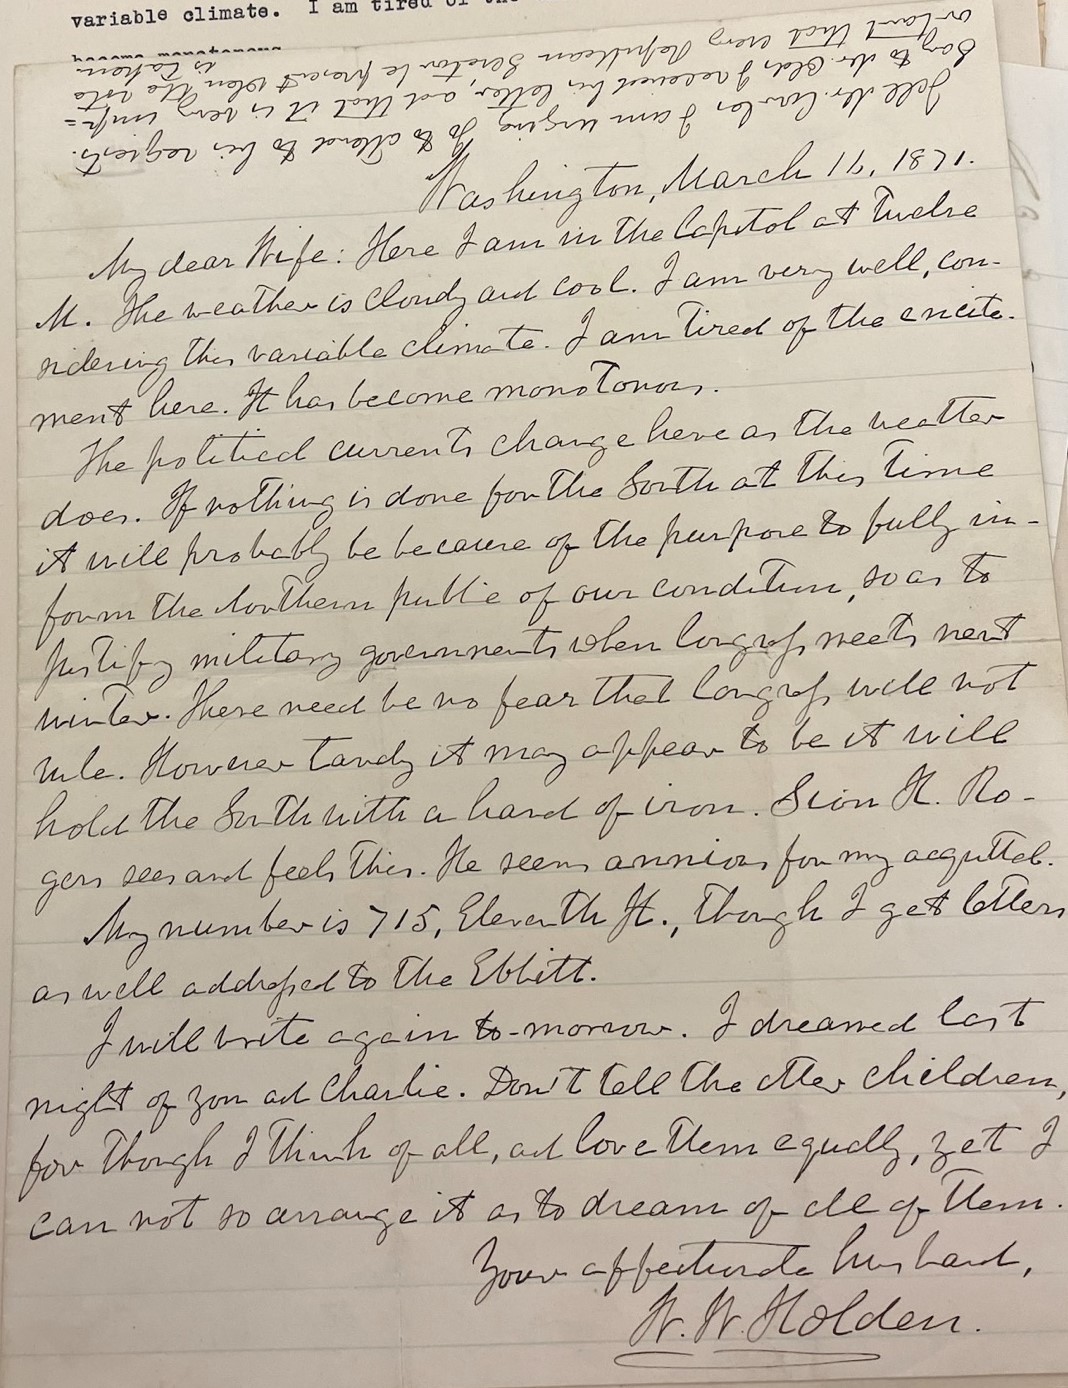 variable climate. I am tired of the
become monotonous
Tell Mr. Cowles I am urging Jo to attend to his requests.
Say to Mr. Olds I received his letter, and that it is very imp-
ortant that every Republican Senator be present when the vote
is taken
Washington, March 17, 1871.
My dear Wife: Here I am in the Capitol at Twelve
M. The weather is cloudy and cool. I am very well, con-
sidering this variable climate. I am tired of the excite-
ment here. It has become monotonous.
The political currents change here as the weather
does. If nothing is done for the South at this time
it will probably be because of the purpose to fully in-
form the Northern public of our condition, so as to
justify military governments when Congress meets next
winter. There need be no fear that Congress will not
rule. However tardy it may appear to be it will
hold the South with a hand of iron. Sion H. Ro-
gers sees and feels this. He seems anxious for my acquittal.
My number is 715, Eleventh St., though I get letters
as well addressed to the Ebbitt.
I will write again to-morrow. I dreamed last
night of you and Charlie. Don't tell the other children,
for though I think of all, and love them equally, yet I
can not so arrange it as to dream of all of them.
Your affectionate husband,
W. W. Holden.